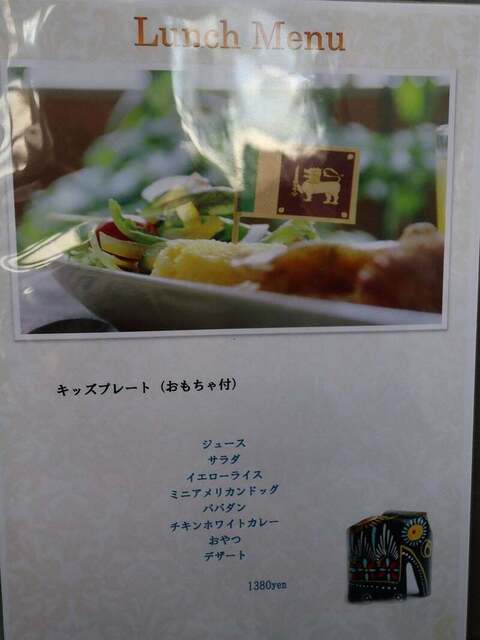 Lunch Menu
キッズプレート（おもちゃ付）
ジュース
サラダ
イエローライス
ミニアメリカンドッグ
パパダン
チキンホワイトカレー
おやつ
デザート
1380yen